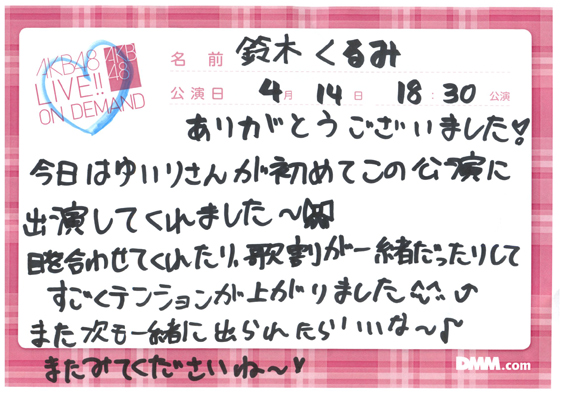 AKB48
LIVE!!
ON DEMAND
AKB
48
名前 鈴木くるみ
公演日 4月 14日 18:30公演
ありがとうございました!
今日はゆいりさんが初めてこの公演に
出演してくれました~
目を合わせてくれたり、歌割が一緒だったりして
すごくテンションが上がりました^^♪
また次も一緒に出られたらいいな~♪
またみてくださいね~♥
DMM.com